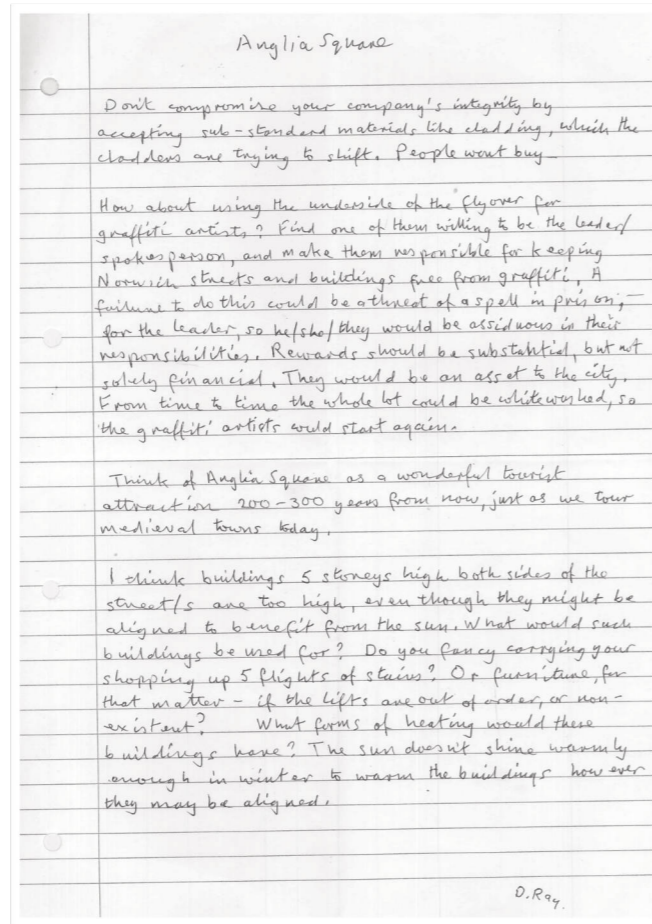 Anglia Square
Don't compromise your company's integrity by
accepting sub-standard materials like cladding, which the
cladders are trying to shift. People wont buy—
How about using the underside of the flyover for
graffiti artists? Find one of them willing to be the leader/
spokesperson, and make them responsible for keeping
Norwich streets and buildings free from graffiti. A
failure to do this could be a threat of a spell in prison,—
for the leader, so he/she/they would be assiduous in their
responsibilities. Rewards should be substantial, but not
solely financial. They would be an asset to the city.
From time to time the whole lot could be whitewashed, so
the graffiti artists could start again.
Think of Anglia Square as a wonderful tourist
attraction 200-300 years from now, just as we tour
medieval towns today.
I think buildings 5 storeys high both sides of the
street/s are too high, even though they might be
aligned to benefit from the sun. What would such
buildings be used for? Do you fancy carrying your
shopping up 5 flights of stairs? Or furniture, for
that matter - if the lifts are out of order, or non-
existent? What forms of heating would these
buildings have? The sun doesn't shine warmly
enough in winter to warm the buildings however
they may be aligned.
D. Ray.